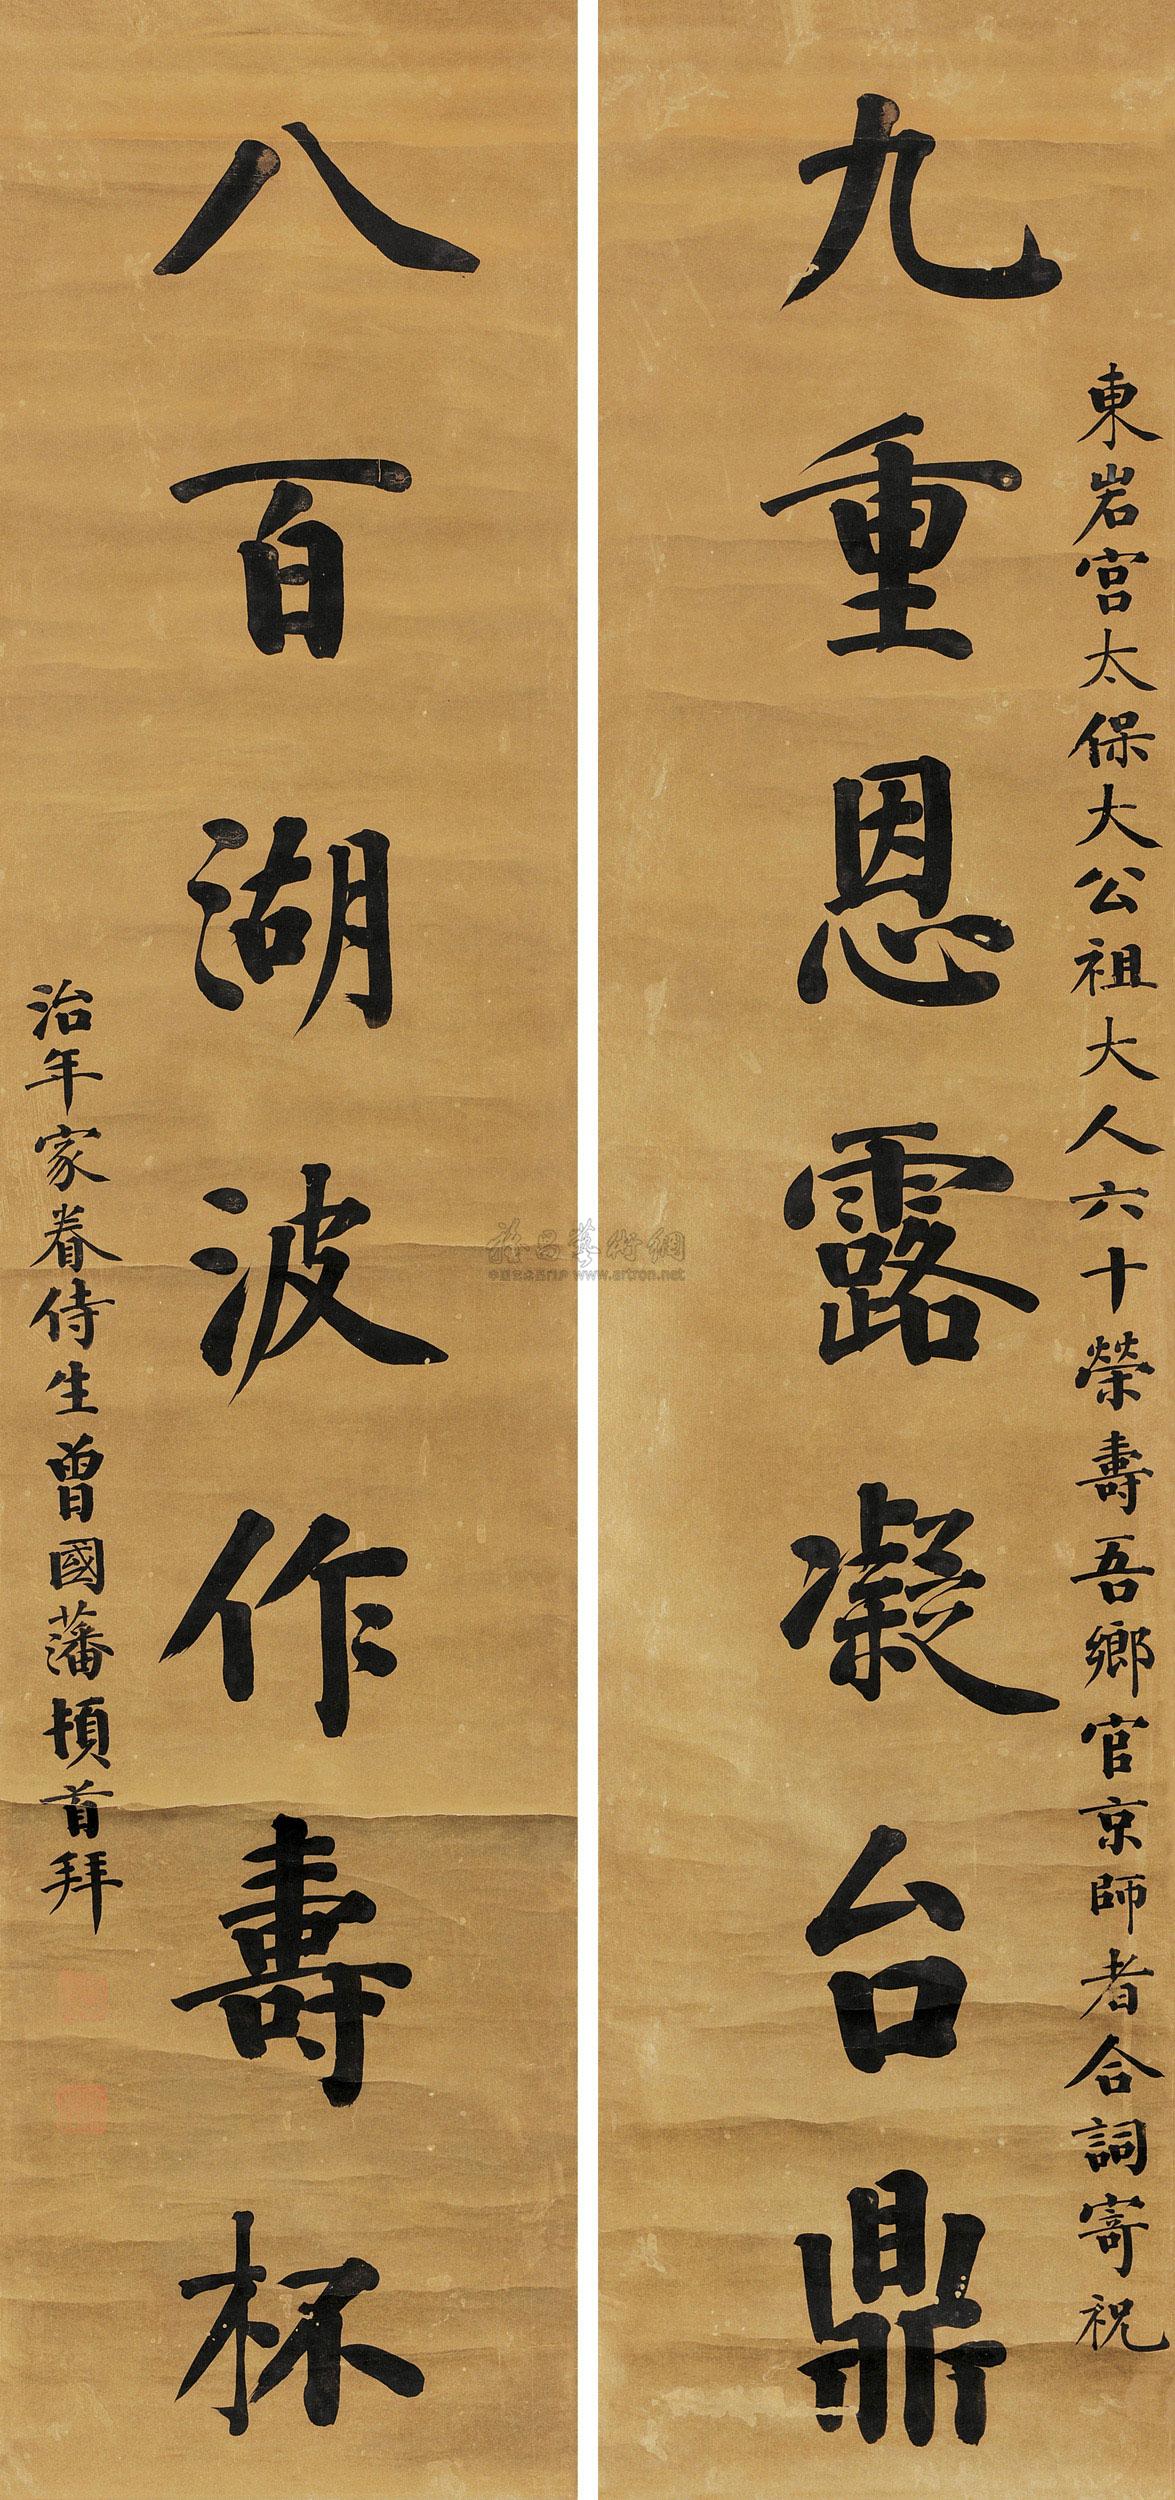 東岩宮太保大公祖大人六十榮壽吾鄉官京師者合詞寄祝
九重恩露凝台鼎
八百湖波作壽杯
治年家眷侍生曾國藩頓首拜
www.artron.net